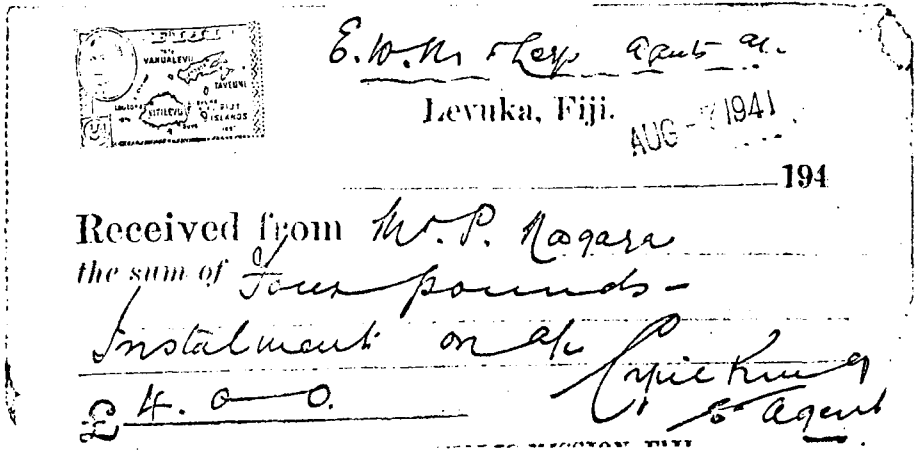 FIJI
VANUALEVU
TAVEUNI
VITILEVU
FIJI
ISLANDS
E. W. Agents a/c.
Levuka, Fiji.
AUG - 7 1941
194
Received from Mr. P. Nagara
the sum of Four pounds -
Instalment on a/c
£ 4. 0 — 0.
Agent
MISSION, FIJI